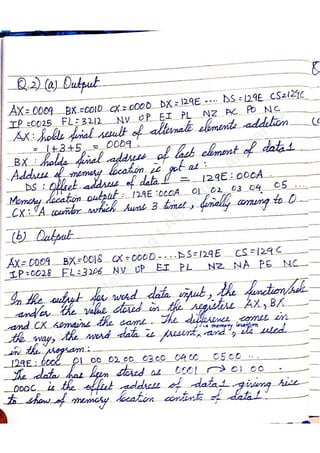 Q.2) (a) Output
AX=0009 BX=0010 CX=0000 DX=129E .... DS=129E CS=129C
IP=0025 FL=3212 NV UP EI PL NZ AC PO NC
AX: holds final result of alternate elements addition
= 1+3+5 = 0009.
BX: holds final address of last element of data1
Address of memory location is got as:
DS: Offset address of data1 = 129E:000A
Memory location output: 129E:000A 01 02 03 04 05 ...
CX: A counter which runs 3 times, finally coming to 0.
(b) Output
AX=0009 BX=0018 CX=0000 .... DS=129E CS=129C
IP=0028 FL=3206 NV UP EI PL NZ NA PE NC
In the output for word data input, the function/role
and/or the value stored in the registers AX, BX
and CX remains the same. The difference comes in
the way, the word data is present in memory location and, its used
in the program:
129E:000C 01 00 02 00 03 00 04 00 05 00 ...
The data has been stored as 0001 → 01 00
000C is the offset address of data1 giving rise
to show of memory location contents of data1.